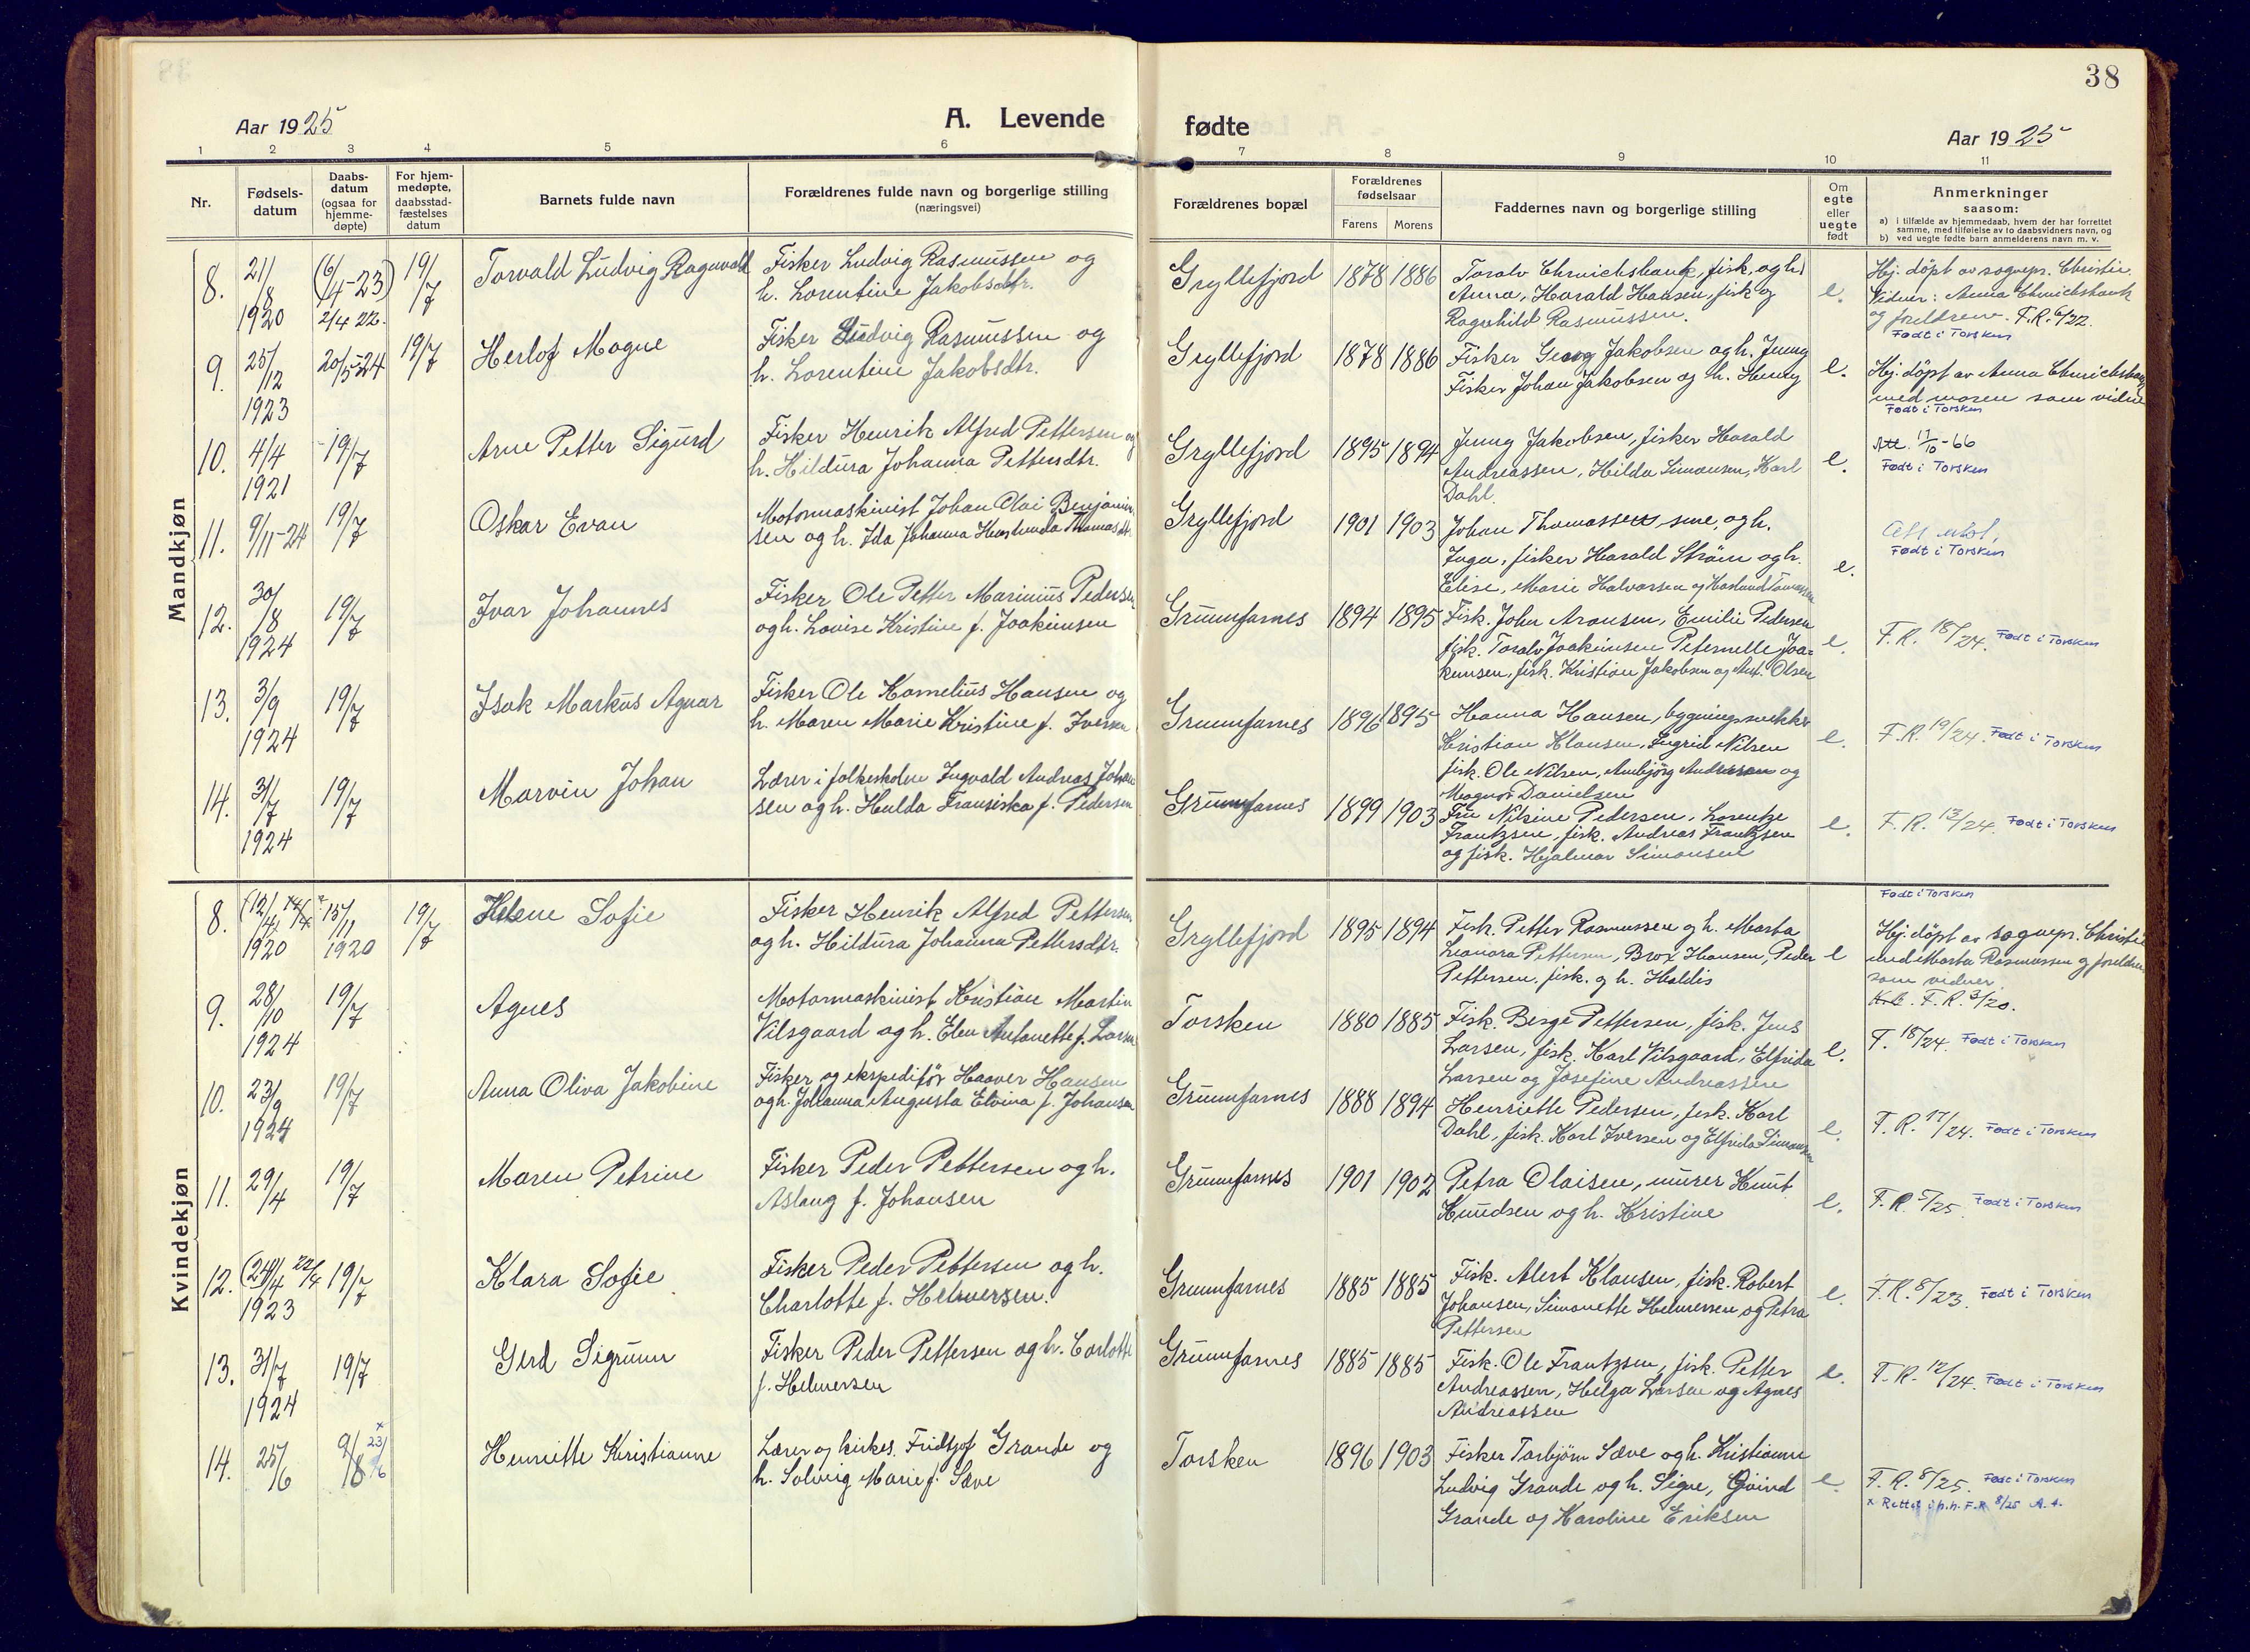 38
Aar 1925
A. Levende
fødte
Aar 1925
1 2 3 4 5 6 7 8 9 10 11
Nr.
Fødsels-
datum
Daabs-
datum
(ogsaa for
hjemme-
døpte)
For hjem-
medøpte,
daabsstad-
fæstelses
datum
Barnets fulde navn
Forældrenes fulde navn og borgerlige stilling
(næringsvei)
Forældrenes bopæl
Forældrenes
fødselsaar
Farens Morens
Faddernes navn og borgerlige stilling
Om
egte
eller
uegte
født
Anmerkninger
saasom:
a) i tilfælde av hjemmedaab, hvem der har forrettet
samme, med tilføielse av to daabsvidners navn, og
b) ved uegte fødte barn anmelderens navn m. v.
Mandkjøn
8. 21/8 1920 (6/4-23) 2/4 22. 19/7 Torvald Ludvig Ragnvald
Fisker Ludvig Rasmussen og
h. Lorentine Jakobsdtr.
Gryllefjord 1878 1886
Toralv Chmichsbank, fisk. og h.
Anna, Harald Hansen, fisk og
Ragnhild Rasmussen.
e.
Hj. döpt av sognepr. Christie.
Vidner: Anna Chmichsbank
og foreldrene. F.R. 6/22.
Født i Torsken
9. 25/12 1923 20/5-24 19/7 Herlof Magne
Fisker Ludvig Rasmussen og
h. Lorentine Jakobsdtr.
Gryllefjord 1878 1886
Fisker Georg Jakobsen og h. Jenny
Fisker Johan Jakobsen og h. Henny
e.
Hj. döpt av Anna Chmichsbank
med moren som vidne
Født i Torsken
10. 4/4 1921 19/7 Arne Petter Sigurd
Fisker Henrik Alfred Pettersen og
h. Hildura Johanna Pettersdtr.
Gryllefjord 1895 1894
Jenny Jakobsen, fisker Harald
Andreassen, Hilda Simonsen, Karl
Dahl.
e.
Att. 11/10-66
Født i Torsken
11. 9/11-24 19/7 Oskar Evan
Motormaskinist Johan Olai Benjamin
sen og h. Ida Johanna Haslunda Thomasdtr.
Gryllefjord 1901 1903
Johan Thomassen sme, og h.
Inga, fisker Harald Ström og h.
Elise, Marie Halvorsen og Haslund Tomassen
e.
Att utst.
Født i Torsken
12. 30/8 1924 19/7 Ivar Johannes
Fisker Ole Petter Marinius Pedersen
og h. Lovise Kristine f. Joakimsen
Grunnfarnes 1894 1895
Fisk. John Aronsen, Emilie Pedersen
fisk. Toralv Joakimsen Peternelle Joa=
kimsen, fisk. Kristian Jakobsen og Ant. Olsen
e.
F.R. 18/24. Født i Torsken
13. 3/9 1924 19/7 Isak Markus Agnar
Fisker Ole Kornelius Hansen og
h. Maren Marie Kristine f. Iversen
Grunnfarnes 1896 1895
Hanna Hansen, bygningssnekker
Kristian Klausen, Ingrid Nilsen
fisk. Ole Nilsen, Ambjörg Andreasen og
Magnor Danielsen
e.
F.R. 19/24. Født i Torsken
14. 31/7 1924 19/7 Marvin Johan
Lærer i folkeskolen Ingvald Andreas Johan
sen og h. Hulda Fransiska f. Pedersen
Grunnfarnes 1899 1903
Fru Nikine Pedersen, Lorentze
Frantzsen, fisk. Andreas Frantzsen
og fisk. Hjalmar Simonsen
e.
F.R. 13/24. Født i Torsken
Kvindekjøn
8. (12/4, 14/4 1920 15/11 1920 19/7 Helene Sofie
Fisker Henrik Alfred Pettersen
og h. Hildura Johanna Pettersdtr.
Gryllefjord 1895 1894
Fisk. Petter Rasmussen og h. Marta
Leonora Pettersen, Brox Hansen, Peder
Pettersen, fisk. og h. Haldis
e
Født i Torsken
Hj. döpt av sognepr. Christie
med Marta Rasmussen og foreldrene
som vidner
F.R. 3/20.
9. 28/10 1924 19/7 Agnes
Motormaskinist Kristian Martin
Vilsgaard og h. Elen Antonette f. Larsen
Torsken 1880 1885
Fisk. Berge Pettersen, fisk. Jens
Larsen, fisk. Karl Vilsgaard, Elfrida
Larsen og Josefine Andreassen
e.
F. 18/24. Født i Torsken
10. 23/9 1924 19/7 Anna Oliva Jakobine
Fisker og ekspeditör Haaver Hansen
og h. Johanna Augusta Elvina f. Johansen
Grunnfarnes 1888 1894
Henriette Pedersen, fisk. Karl
Dahl, fisk. Karl Iversen og Elfrida Simonsen
e.
F.R. 17/24. Født i Torsken
11. 29/4 19/7 Maren Petrine
Fisker Peder Pettersen og h.
Aslaug f. Johansen
Grunnfarnes 1901 1902
Petra Olaisen, murer Knut
Knudsen og h. Kristine
e.
F.R. 5/25. Født i Torsken
12. (24/4 22/4 1923 19/7 Klara Sofie
Fisker Peder Pettersen og h.
Charlotte f. Helmersen.
Grunnfarnes 1885 1885
Fisk. Alert Klausen, fisk. Robert
Johansen, Simonette Helmersen og Petra
Pettersen
e.
F.R. 8/23. Født i Torsken
13. 31/7 1924 19/7 Gerd Sigrunn
Fisker Peder Pettersen og h. Carlotte
f. Helmersen
Grunnfarnes 1885 1885
Fisk. Ole Frantzsen, fisk. Petter
Andreassen, Helga Larsen og Agnes
Andreassen
e.
F.R. 12/24. Født i Torsken
14. 25/6 9/8 x 23/6 Henriette Kristianne
Lærer og kirkes. Fridtjof Grande og
h. Solveig Marie f. Sæve
Torsken 1896 1903
Fisker Torbjørn Sæve og h. Kristianne
Ludvig Grande og h. Signe, Öivind
Grande og Karoline Eriksen
e.
F.R. 8/25. Født i Torsken
x Rettet i h.h. F.R 8/25 A.t.